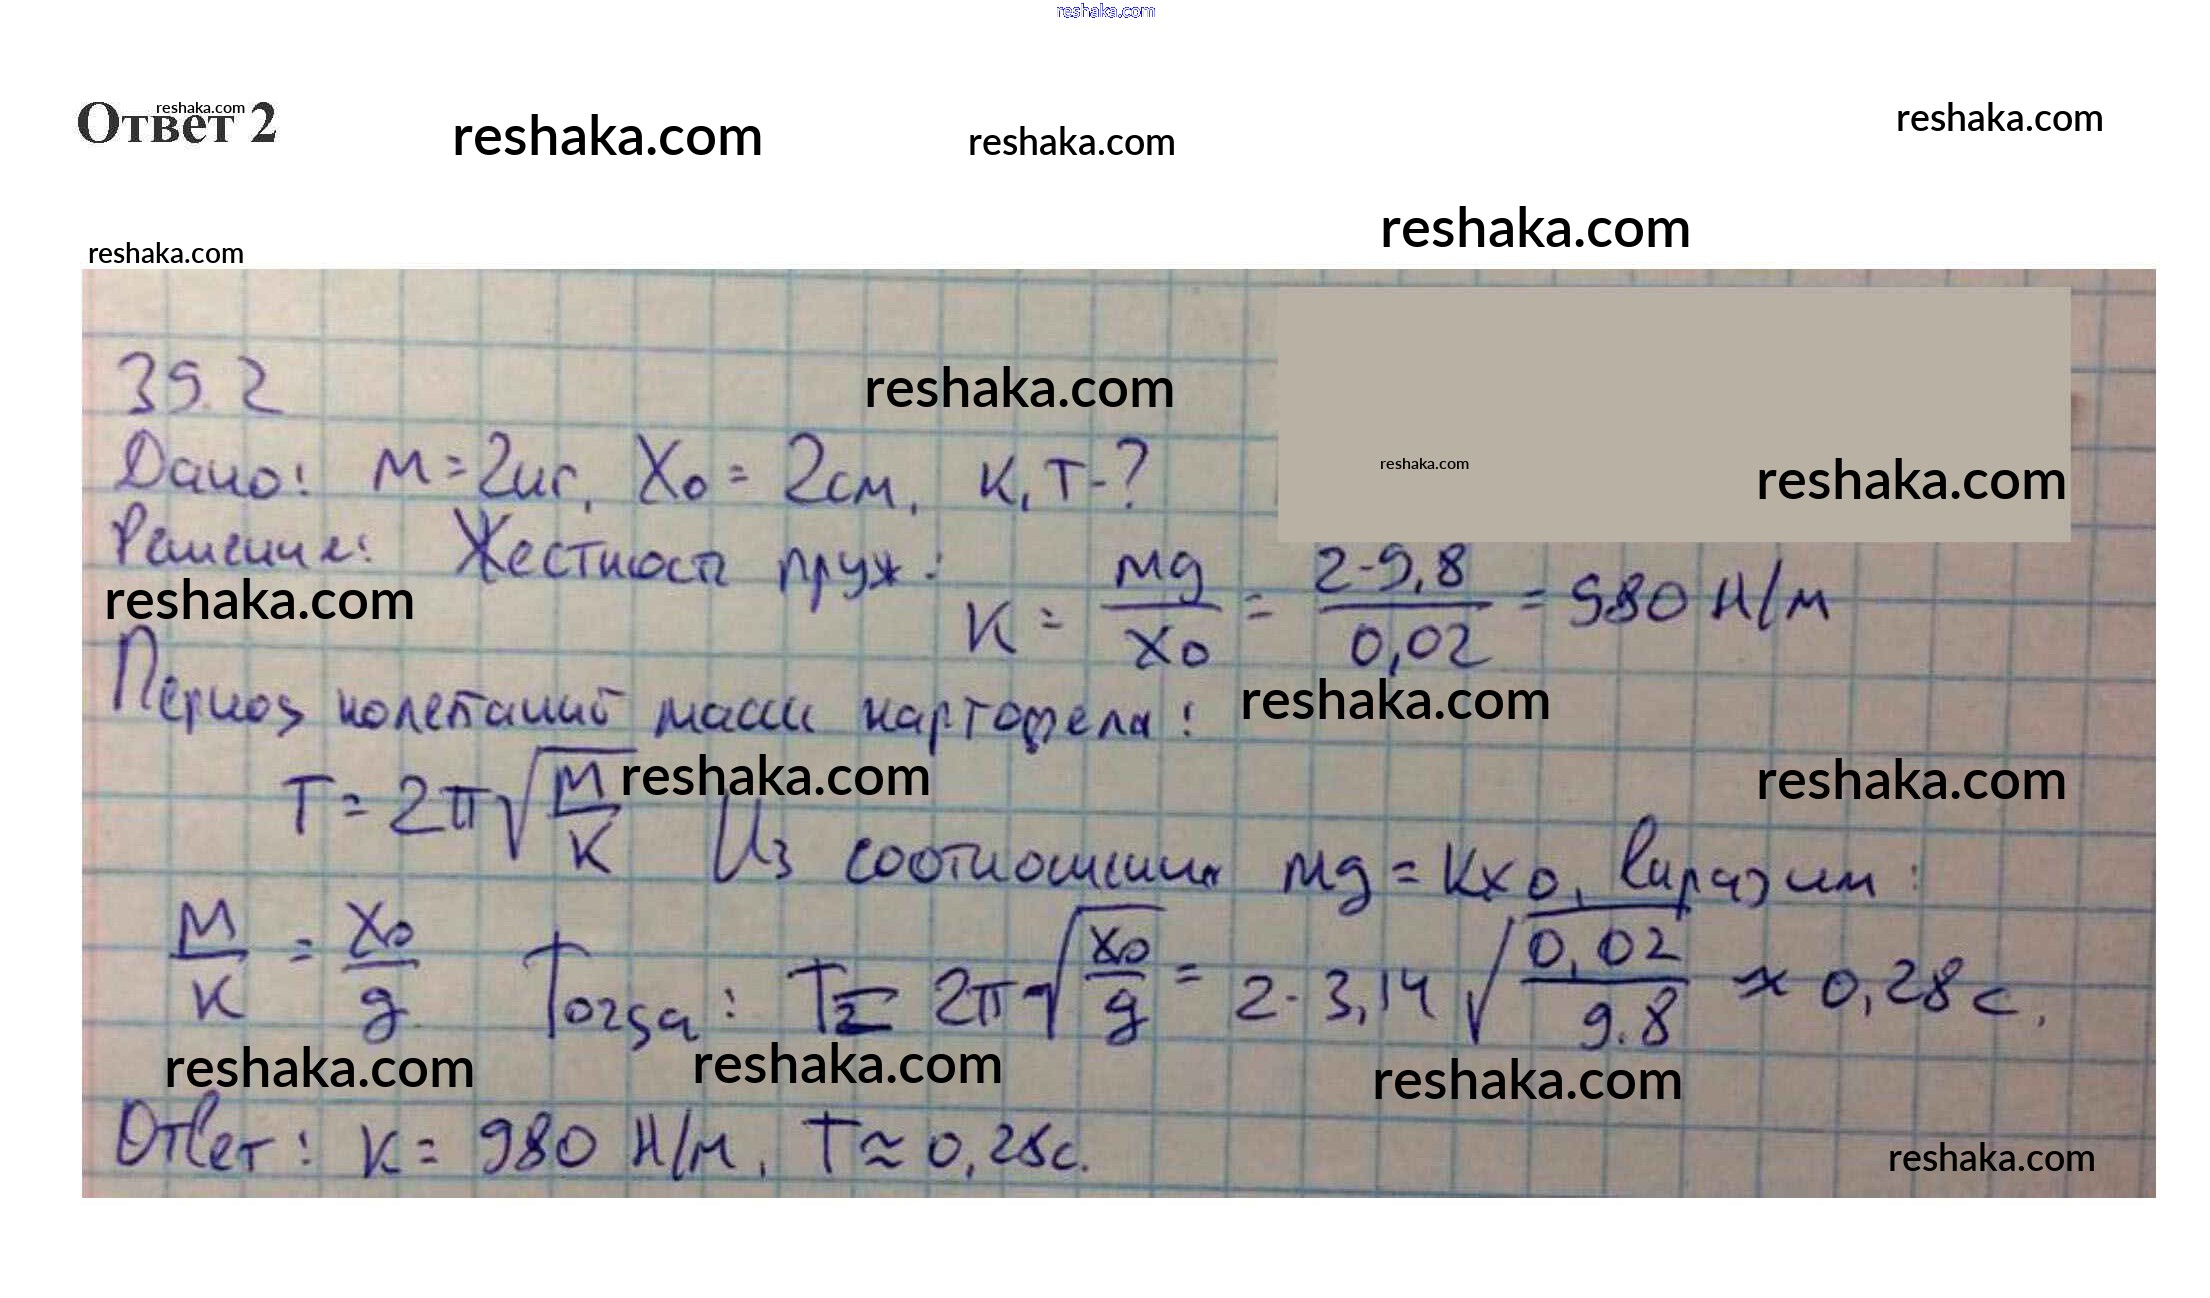 reshaka.com
Ответ 2
reshaka.com
reshaka.com
reshaka.com
reshaka.com
reshaka.com
reshaka.com
39.2
reshaka.com
Дано: м = 2кг, X₀ = 2см, к, T-?
reshaka.com
reshaka.com
Решение: Жесткость пруж:
к = mg/x₀ = 2·9,8/0,02 = 980 Н/м
reshaka.com
Период колебаний массы картофеля:
reshaka.com
T = 2π√(м/к) Из соотношения mg = Kx₀, выразим:
reshaka.com
reshaka.com
м/к = x₀/g Тогда: T = 2π√(x₀/g) = 2·3,14√(0,02/9.8) ≈ 0,28 с.
reshaka.com
reshaka.com
reshaka.com
Ответ: к = 980 Н/м, T ≈ 0,28с.
reshaka.com